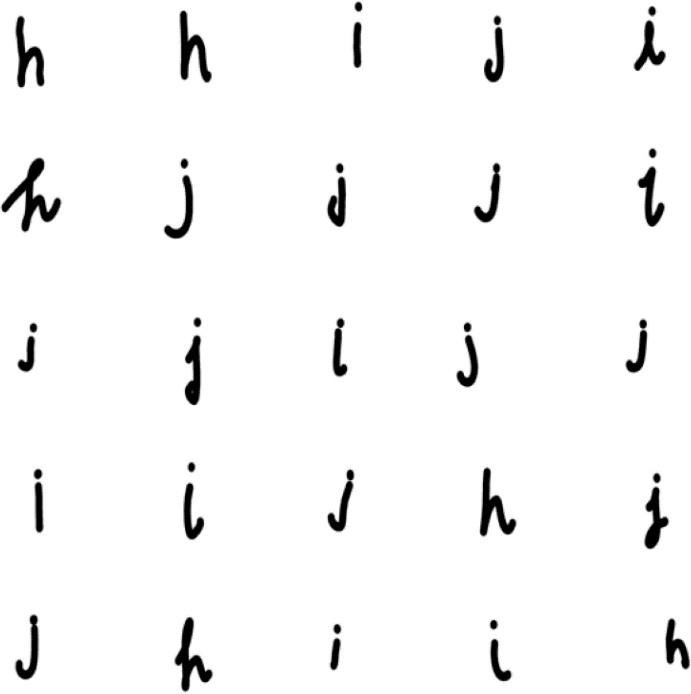 h h i j i
h j j j i
j j i j j
i i j h j
j h i i h